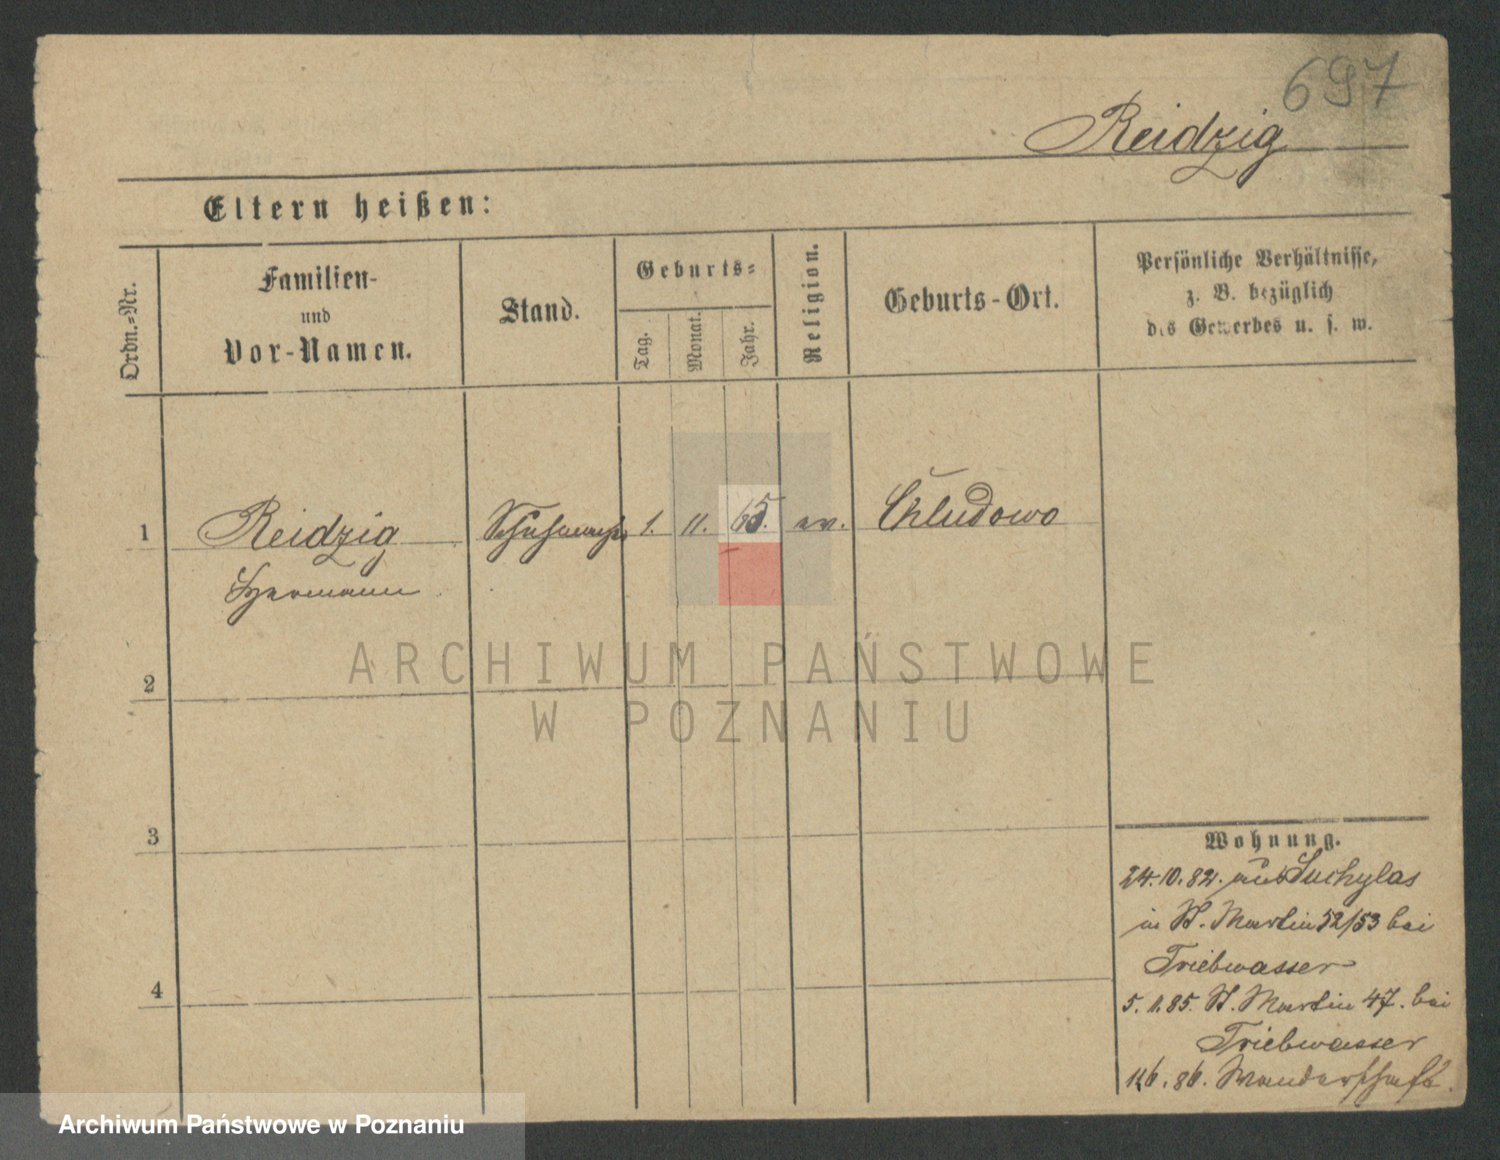 697
Reidzig
Eltern heißen:
Ordn.=Nr.
Familien-
und
Vor-Namen.
Stand.
Geburts=
Tag.
Monat.
Jahr.
Religion.
Geburts-Ort.
Persönliche Verhältnisse,
z. B. bezüglich
des Gewerbes u. s. w.
1
Reidzig
Hermann
1. 11. 65. ev.
Chludowo
2
3
4
Wohnung.
24.10.82. aus Suchylas
in St. Martin 52/53 bei
Triebwasser
5. 1. 85. St. Martin 47. bei
Triebwasser
86. Wanderschaft.
ARCHIWUM PAŃSTWOWE
W POZNANIU
Archiwum Państwowe w Poznaniu